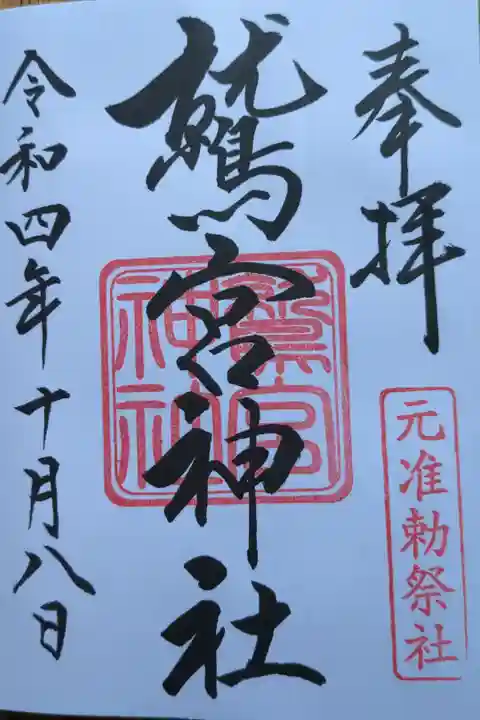 奉拝
元准勅祭社
鷲宮神社
鷲宮
神社
令和四年十月八日